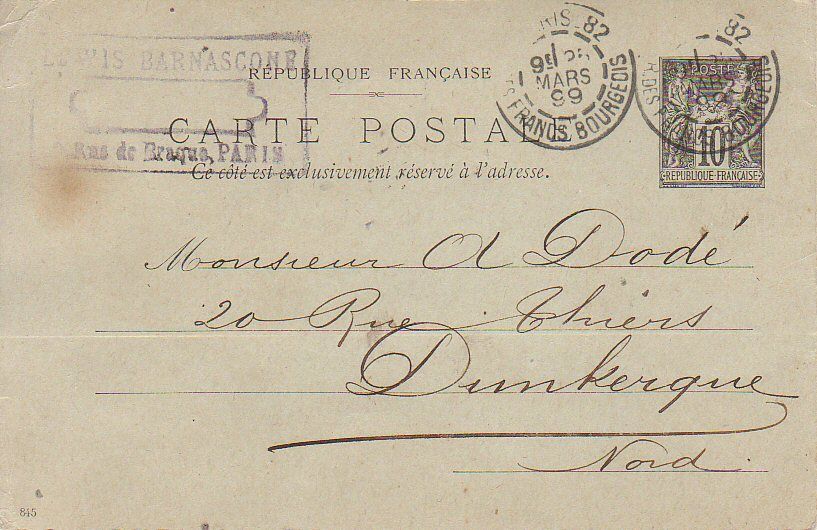 LOUIS BARNASCONE
Rue de Braque, PARIS
RÉPUBLIQUE FRANÇAISE
CARTE POSTALE
Ce côté est exclusivement réservé à l'adresse.
PARIS 82
MARS
99
FRANCS BOURGEOIS
82
BOURGEOIS
POSTE
10
RÉPUBLIQUE FRANÇAISE
Monsieur A Dodé
20 Rue Thiers
Dunkerque
Nord
845